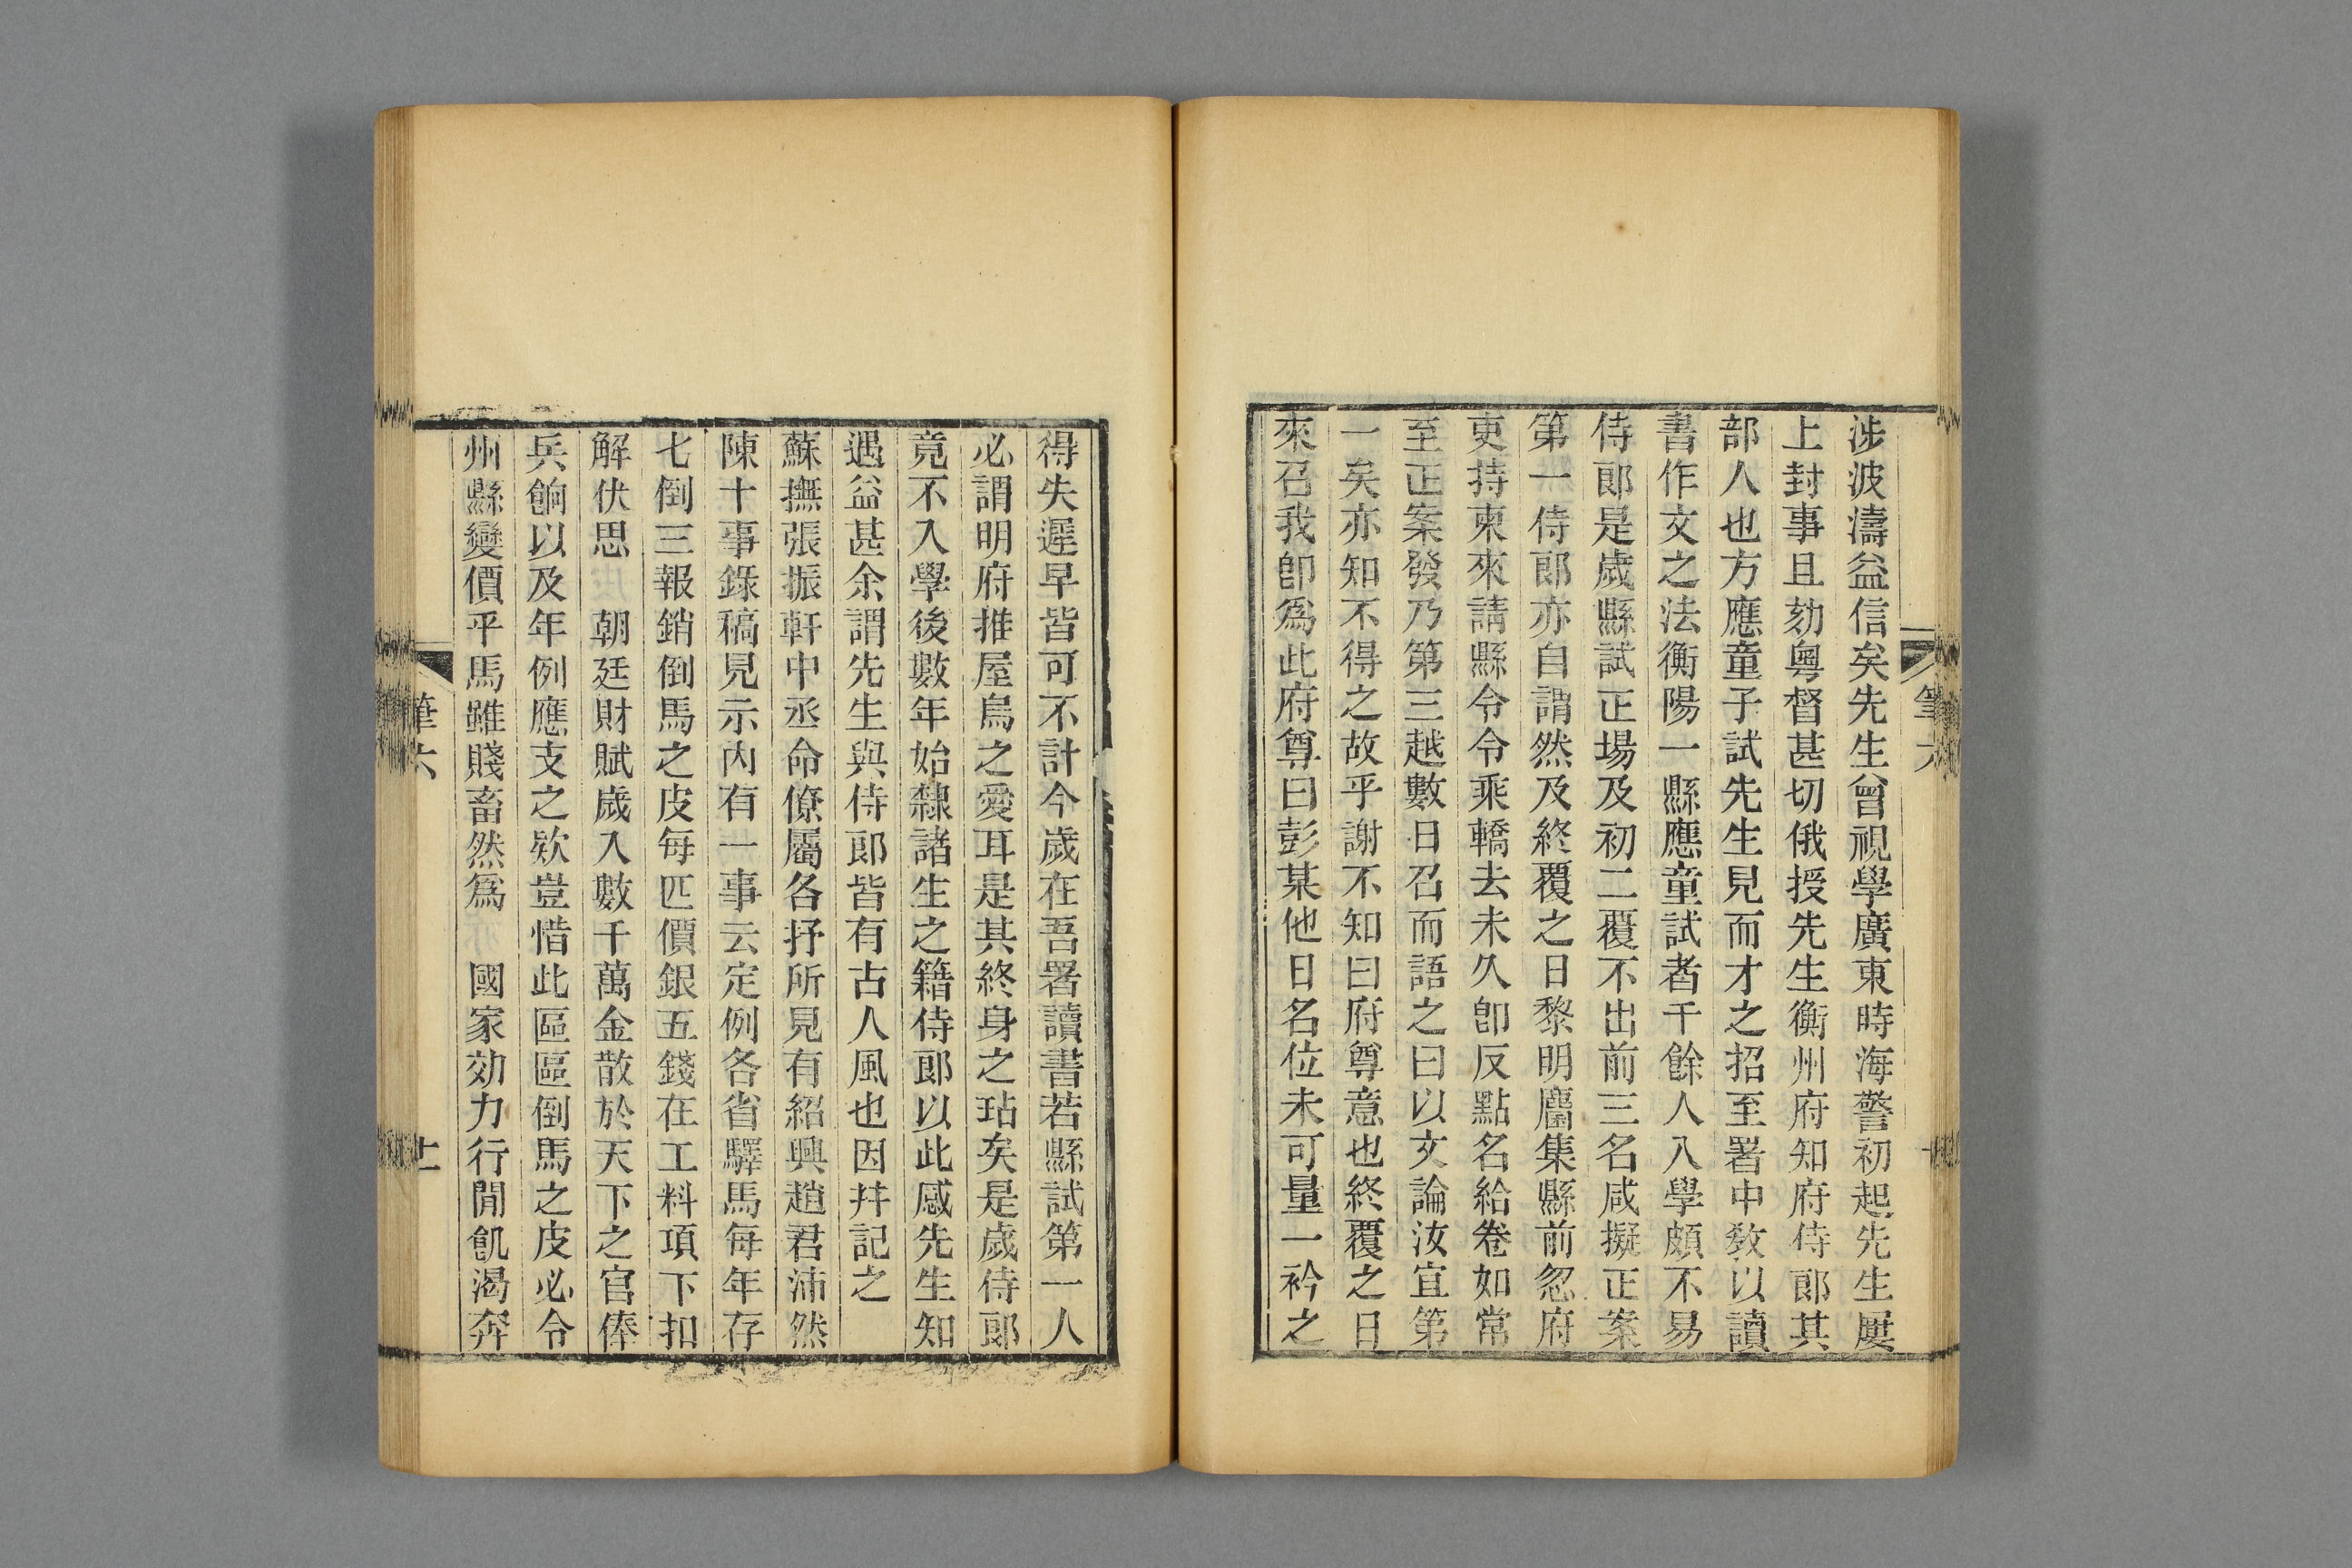 涉波濤益信矣先生曾視學廣東時海警初起先生屢
上封事且劾粵督甚切俄授先生衡州府知府侍郞其
部人也方應童子試先生見而才之招至署中敎以讀
書作文之法衡陽一縣應童試者千餘人入學頗不易
侍郞是歲縣試正場及初二覆不出前三名咸擬正案
第一侍郞亦自謂然及終覆之日黎明麕集縣前忽府
吏持柬來請縣令令乘轎去未久卽反點名給卷如常
至正案發乃第三越數日召而語之曰以文論汝宜第
一矣亦知不得之故乎謝不知曰府尊意也終覆之日
來召我卽爲此府尊曰彭某他日名位未可量一衿之
得失遲早皆可不計今歲在吾署讀書若縣試第一人
必謂明府推屋烏之愛耳是其終身之玷矣是歲侍郞
竟不入學後數年始隸諸生之籍侍郞以此感先生知
遇益甚余謂先生與侍郞皆有古人風也因幷記之
蘇撫張振軒中丞命僚屬各抒所見有紹興趙君沛然
陳十事錄稿見示內有一事云定例各省驛馬每年存
七倒三報銷倒馬之皮每匹價銀五錢在工料項下扣
解伏思 朝廷財賦歲入數千萬金散於天下之官俸
兵餉以及年例應支之欵豈惜此區區倒馬之皮必令
州縣變價乎馬雖賤畜然爲 國家効力行閒飢渴奔
筆六